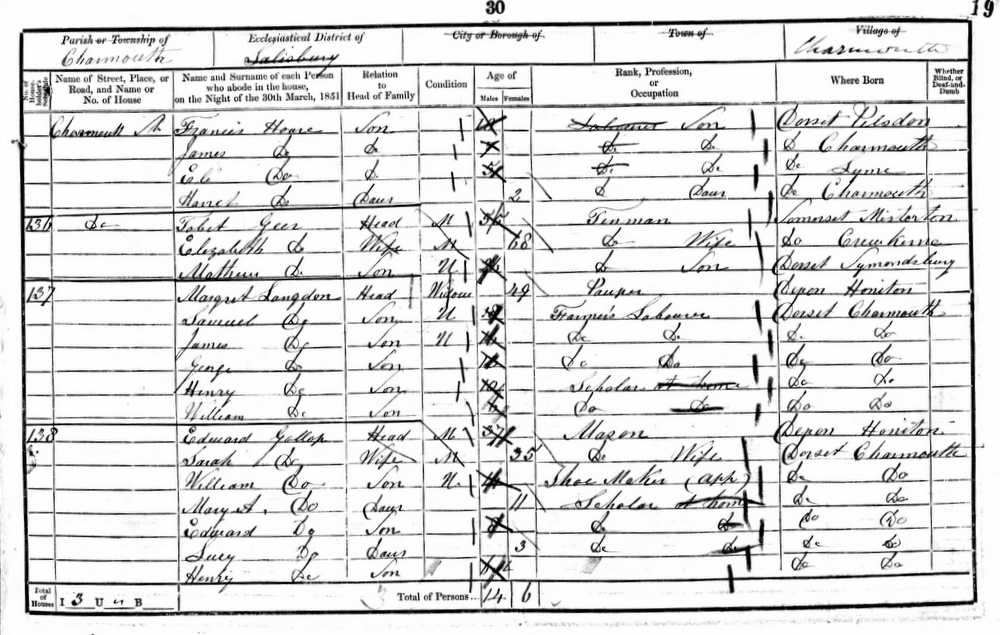 30
19
Parish or Township of Ecclesiastical District of City or Borough of Town of Village of
Charmouth Salisbury Charmouth
No. of House-holder's Schedule Name of Street, Place, or Road, and Name or No. of House Name and Surname of each Person who abode in the house, on the Night of the 30th March, 1851 Relation to Head of Family Condition Age of Males Females Rank, Profession, or Occupation Where Born Whether Blind, or Deaf-and-Dumb
Charmouth St Francis Hoare Son Labourer Son Dorset Pilsdon
James Do Do Do Do Do Charmouth
Eli Do Do Do Do Do Lyme
Harriet Do Daur 2 Do Daur Do Charmouth
136 Do Tobet Geer Head M Tinman Somerset Misterton
Elizabeth Do Wife M 68 Do Wife Do Crewkerne
Mathew Do Son U Do Son Dorset Symondsbury
137 Margret Langdon Head Widow 49 Pauper Devon Honiton
Samuel Do Son U Labourer Dorset Charmouth
James Do Son U Do Do Do Do
George Do Son Do Do Do Do
Henry Do Son Scholar at home Do Do
William Do Son Do Do Do Do
138 Edward Gollop Head M Mason Devon Honiton
Sarah Do Wife M 35 Do Wife Dorset Charmouth
William Do Son U Shoe Maker (App) Do Do
Mary A. Do Daur 11 Scholar at home Do Do
Edward Do Son Do Do Do Do
Lucy Do Daur 3 Do Do Do Do
Henry Do Son Do Do
Total of Houses I 3 U B Total of Persons... 14 6